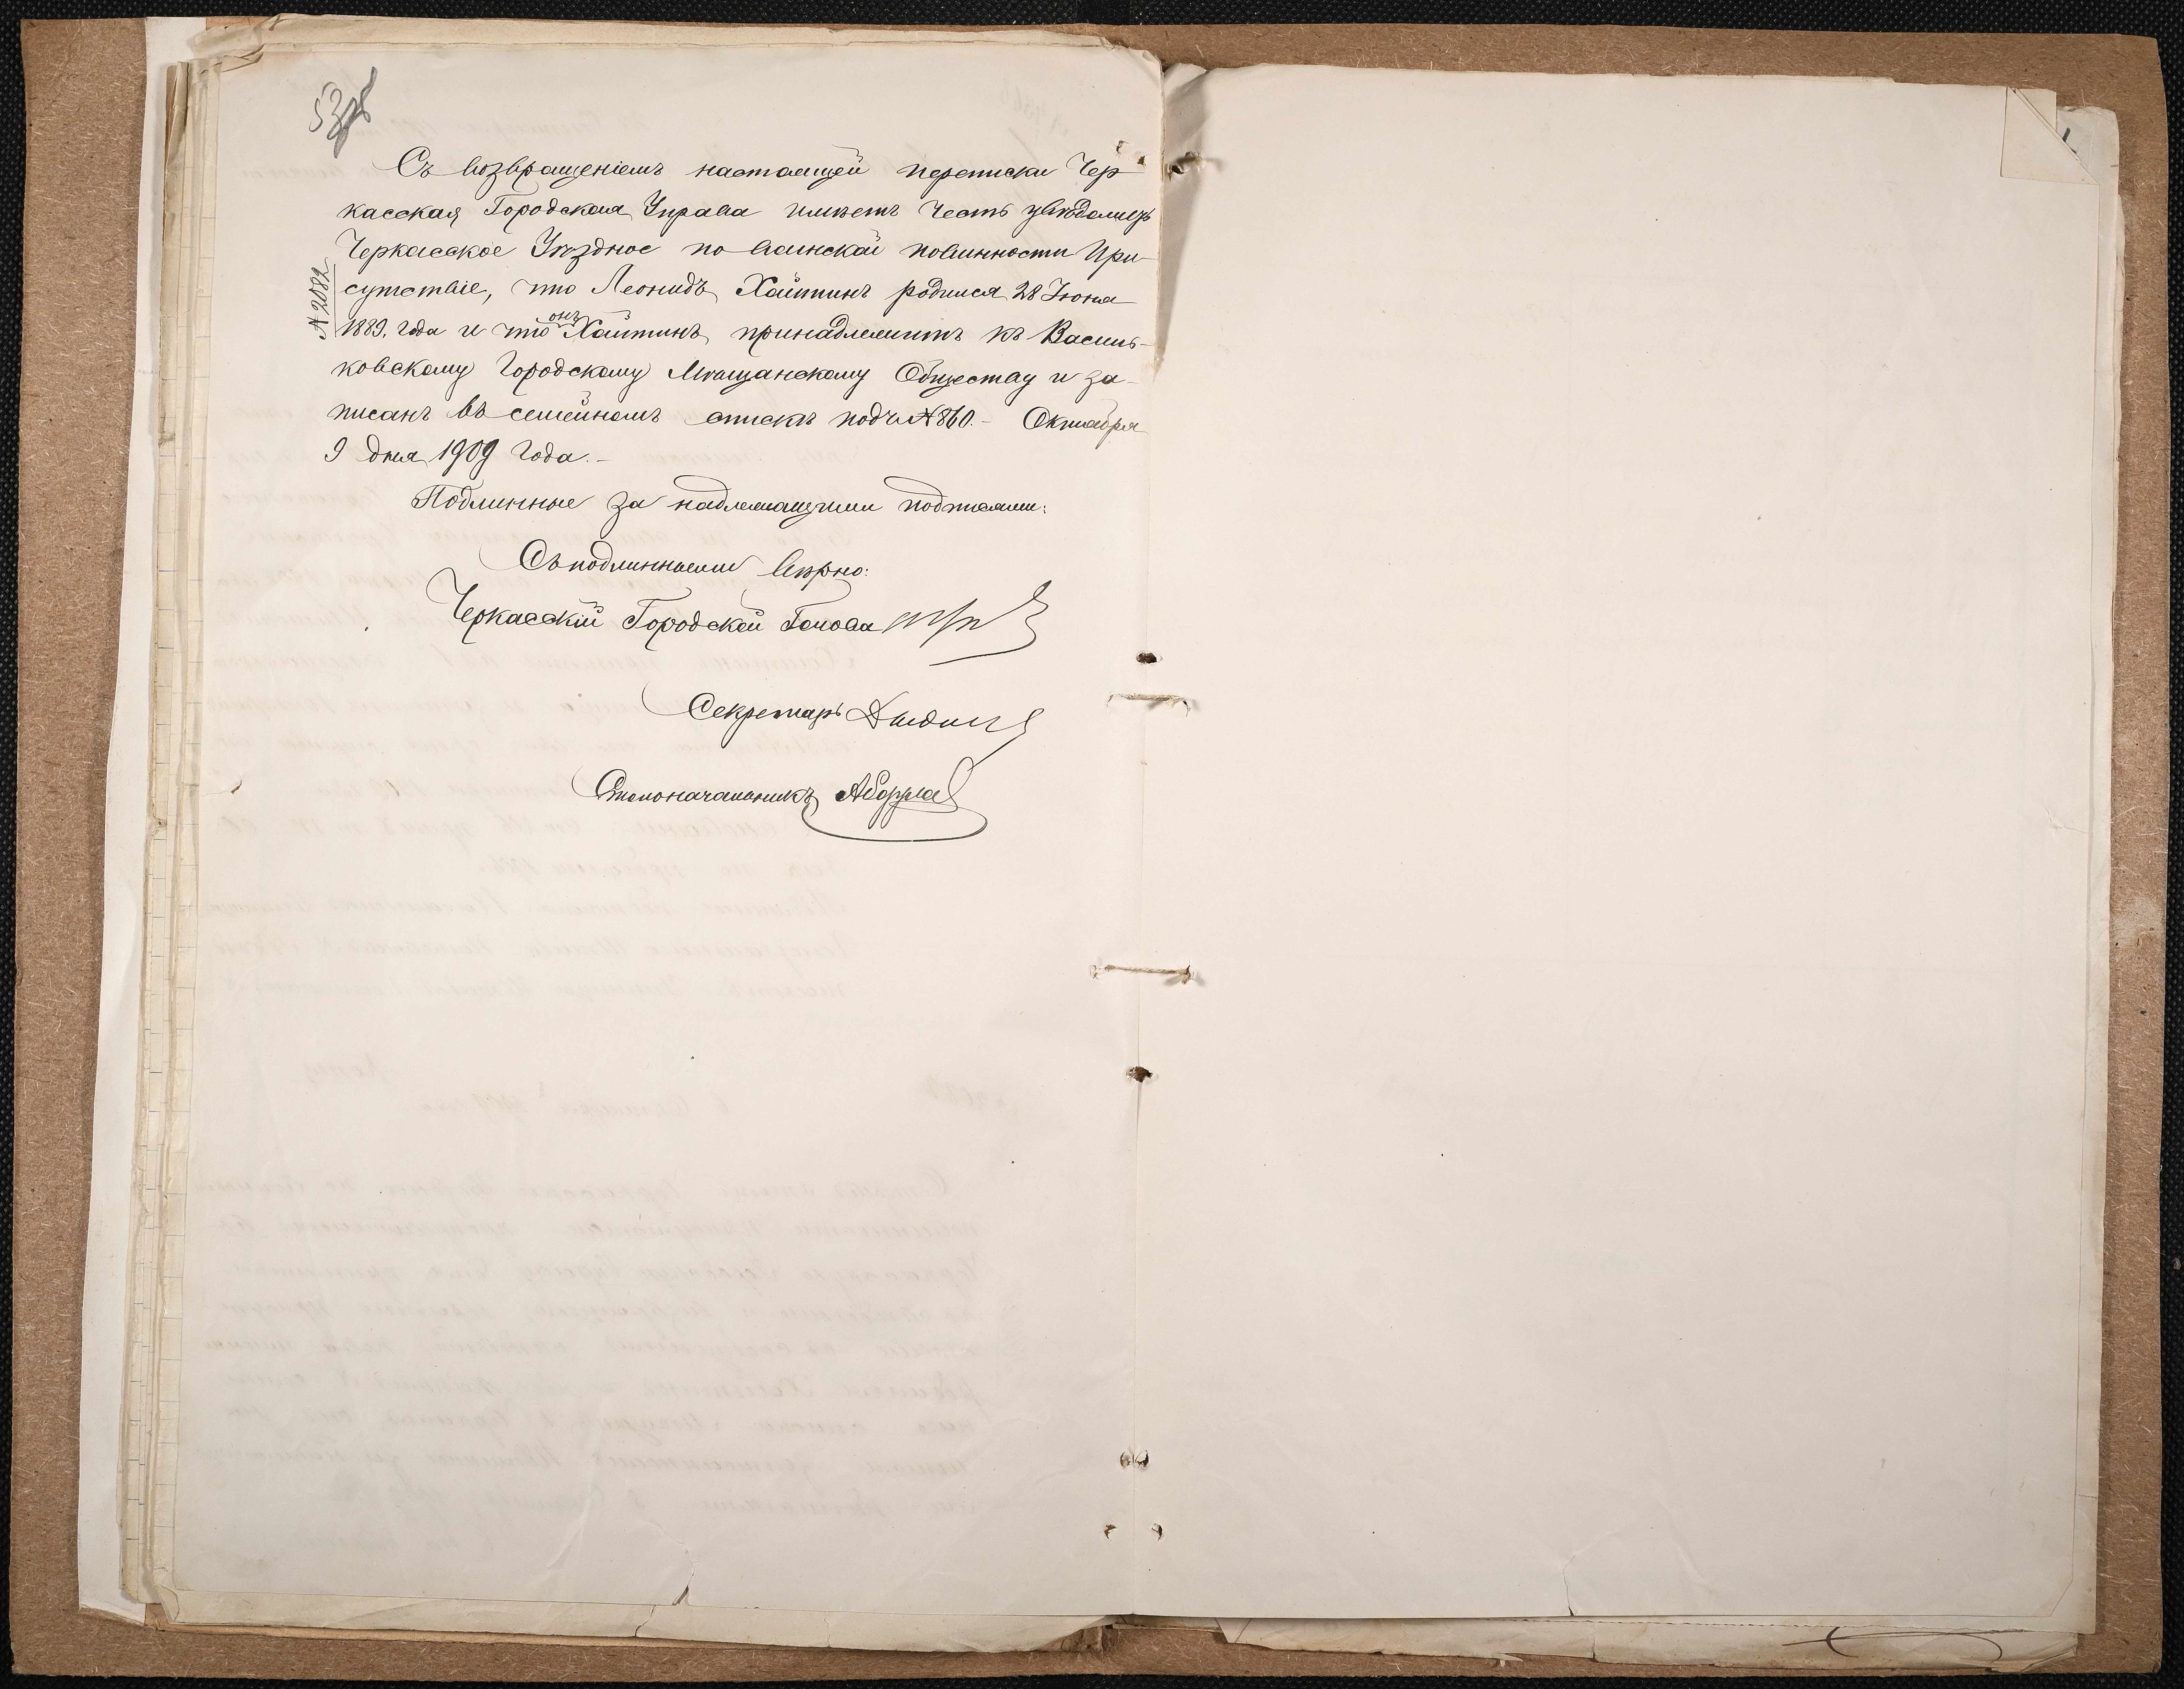 Съ возвращеніемъ настоящей переписки Чер-
касская Городская Управа имѣетъ честь увѣдомить
Черкасское Уѣздное по воинской повинности При-
№ 2082
сутствіе, что Леонидъ Хайтинъ родился 28 Іюня
1889. года и что онъ Хайтинъ, принадлежитъ къ Василь-
ковскому Городскому Мѣщанскому Обществу и за-
писанъ въ семейномъ спискѣ подъ № 860.- Октября
9 дня 1909 года.-
Подлинные за надлежащими подписями:
Съ подлинными вѣрно:
Черкасскій Городской Голова
Секретарь
Столоначальникъ